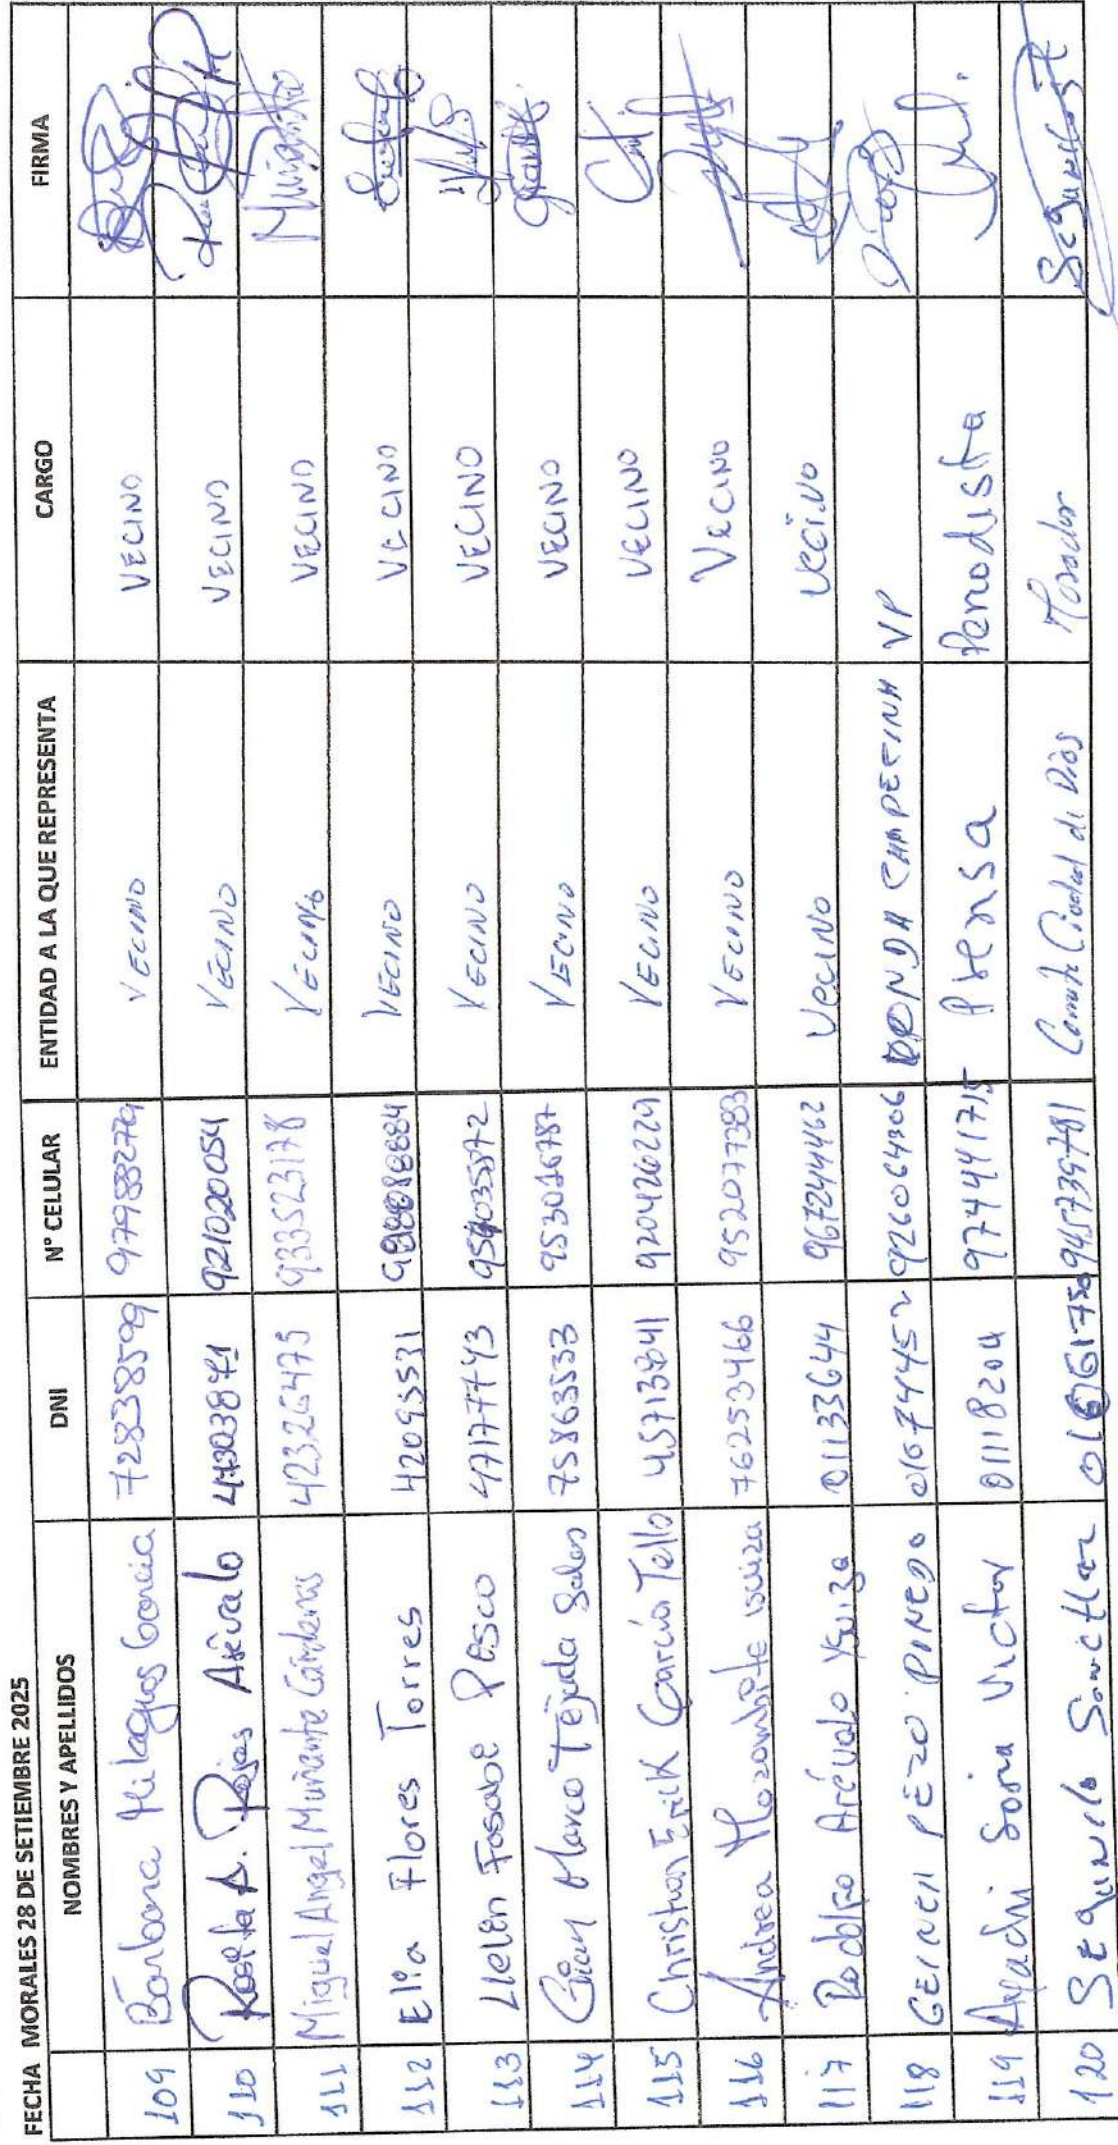 FECHA MORALES 28 DE SETIEMBRE 2025
NOMBRES Y APELLIDOS DNI N° CELULAR ENTIDAD A LA QUE REPRESENTA CARGO FIRMA
109 Bárbara Milagros García 72838599 979883279 VECINO VECINO
110 Rosita A. Rojas Arévalo 47303871 921020054 VECINO VECINO
111 Miguel Angel Muñante Cárdenas 42326475 933523178 VECINO VECINO
112 Elia Flores Torres 42095531 VECINO VECINO
113 Llelen Fasabe Pesco 47177743 VECINO VECINO
114 Gian Marco Tejada Salas 75863533 953016787 VECINO VECINO
115 Christhian Erick García Tello 920426229 VECINO VECINO
116 Andrea Mozombite Isuiza 76253466 952077383 VECINO VECINO
117 Rodolfo Arévalo Ysuiza 01133644 967244462 Vecino Vecino
118 PEZO PINEDO 01674452 RONDA CAMPECINA VP
119 Soria Victor 01118204 974441715 Prensa Periodista
120 SEGUNdo Sanchez 945739781 Comite Ciudad de Dios Morador